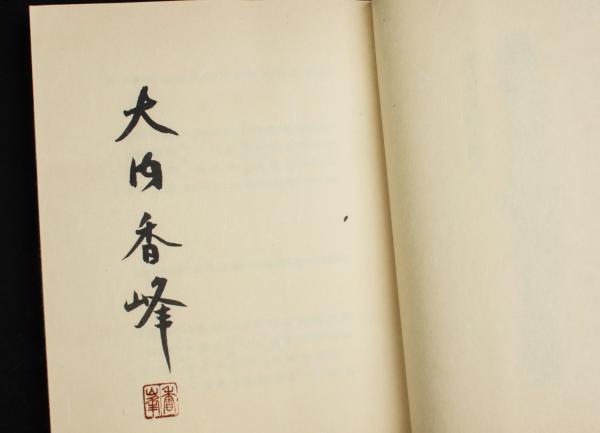 大内香峰
香峯